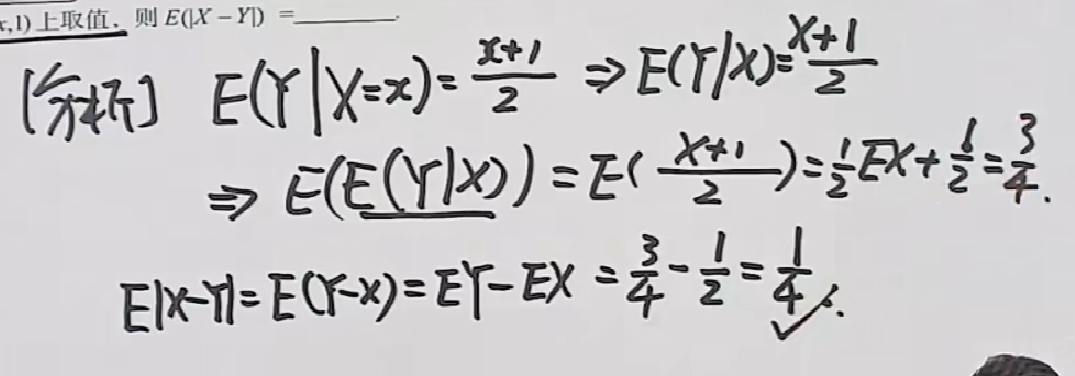 x,1)上取值，则 E(|X－Y|) ＝________.
[分析] E(Y|X=x)=\frac{x+1}{2} ⇒ E(Y|X)=\frac{X+1}{2}
⇒ E(E(Y|X))=E(\frac{X+1}{2})=\frac{1}{2}EX+\frac{1}{2}=\frac{3}{4}.
E|X-Y|=E(Y-X)=EY-EX=\frac{3}{4}-\frac{1}{2}=\frac{1}{4}.